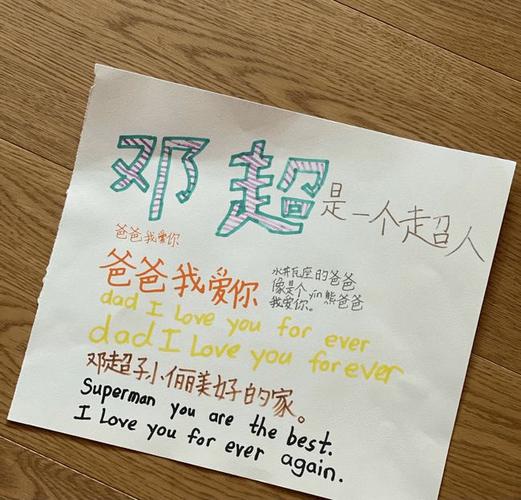 邓超是一个超人
爸爸我爱你
爸爸我爱你
水井瓦座的爸爸
像是个yin熊爸爸
我爱你。
dad I Love you for ever
dad I Love you forever
邓超子小俪美好的家。
Superman you are the best.
I Love you for ever again.